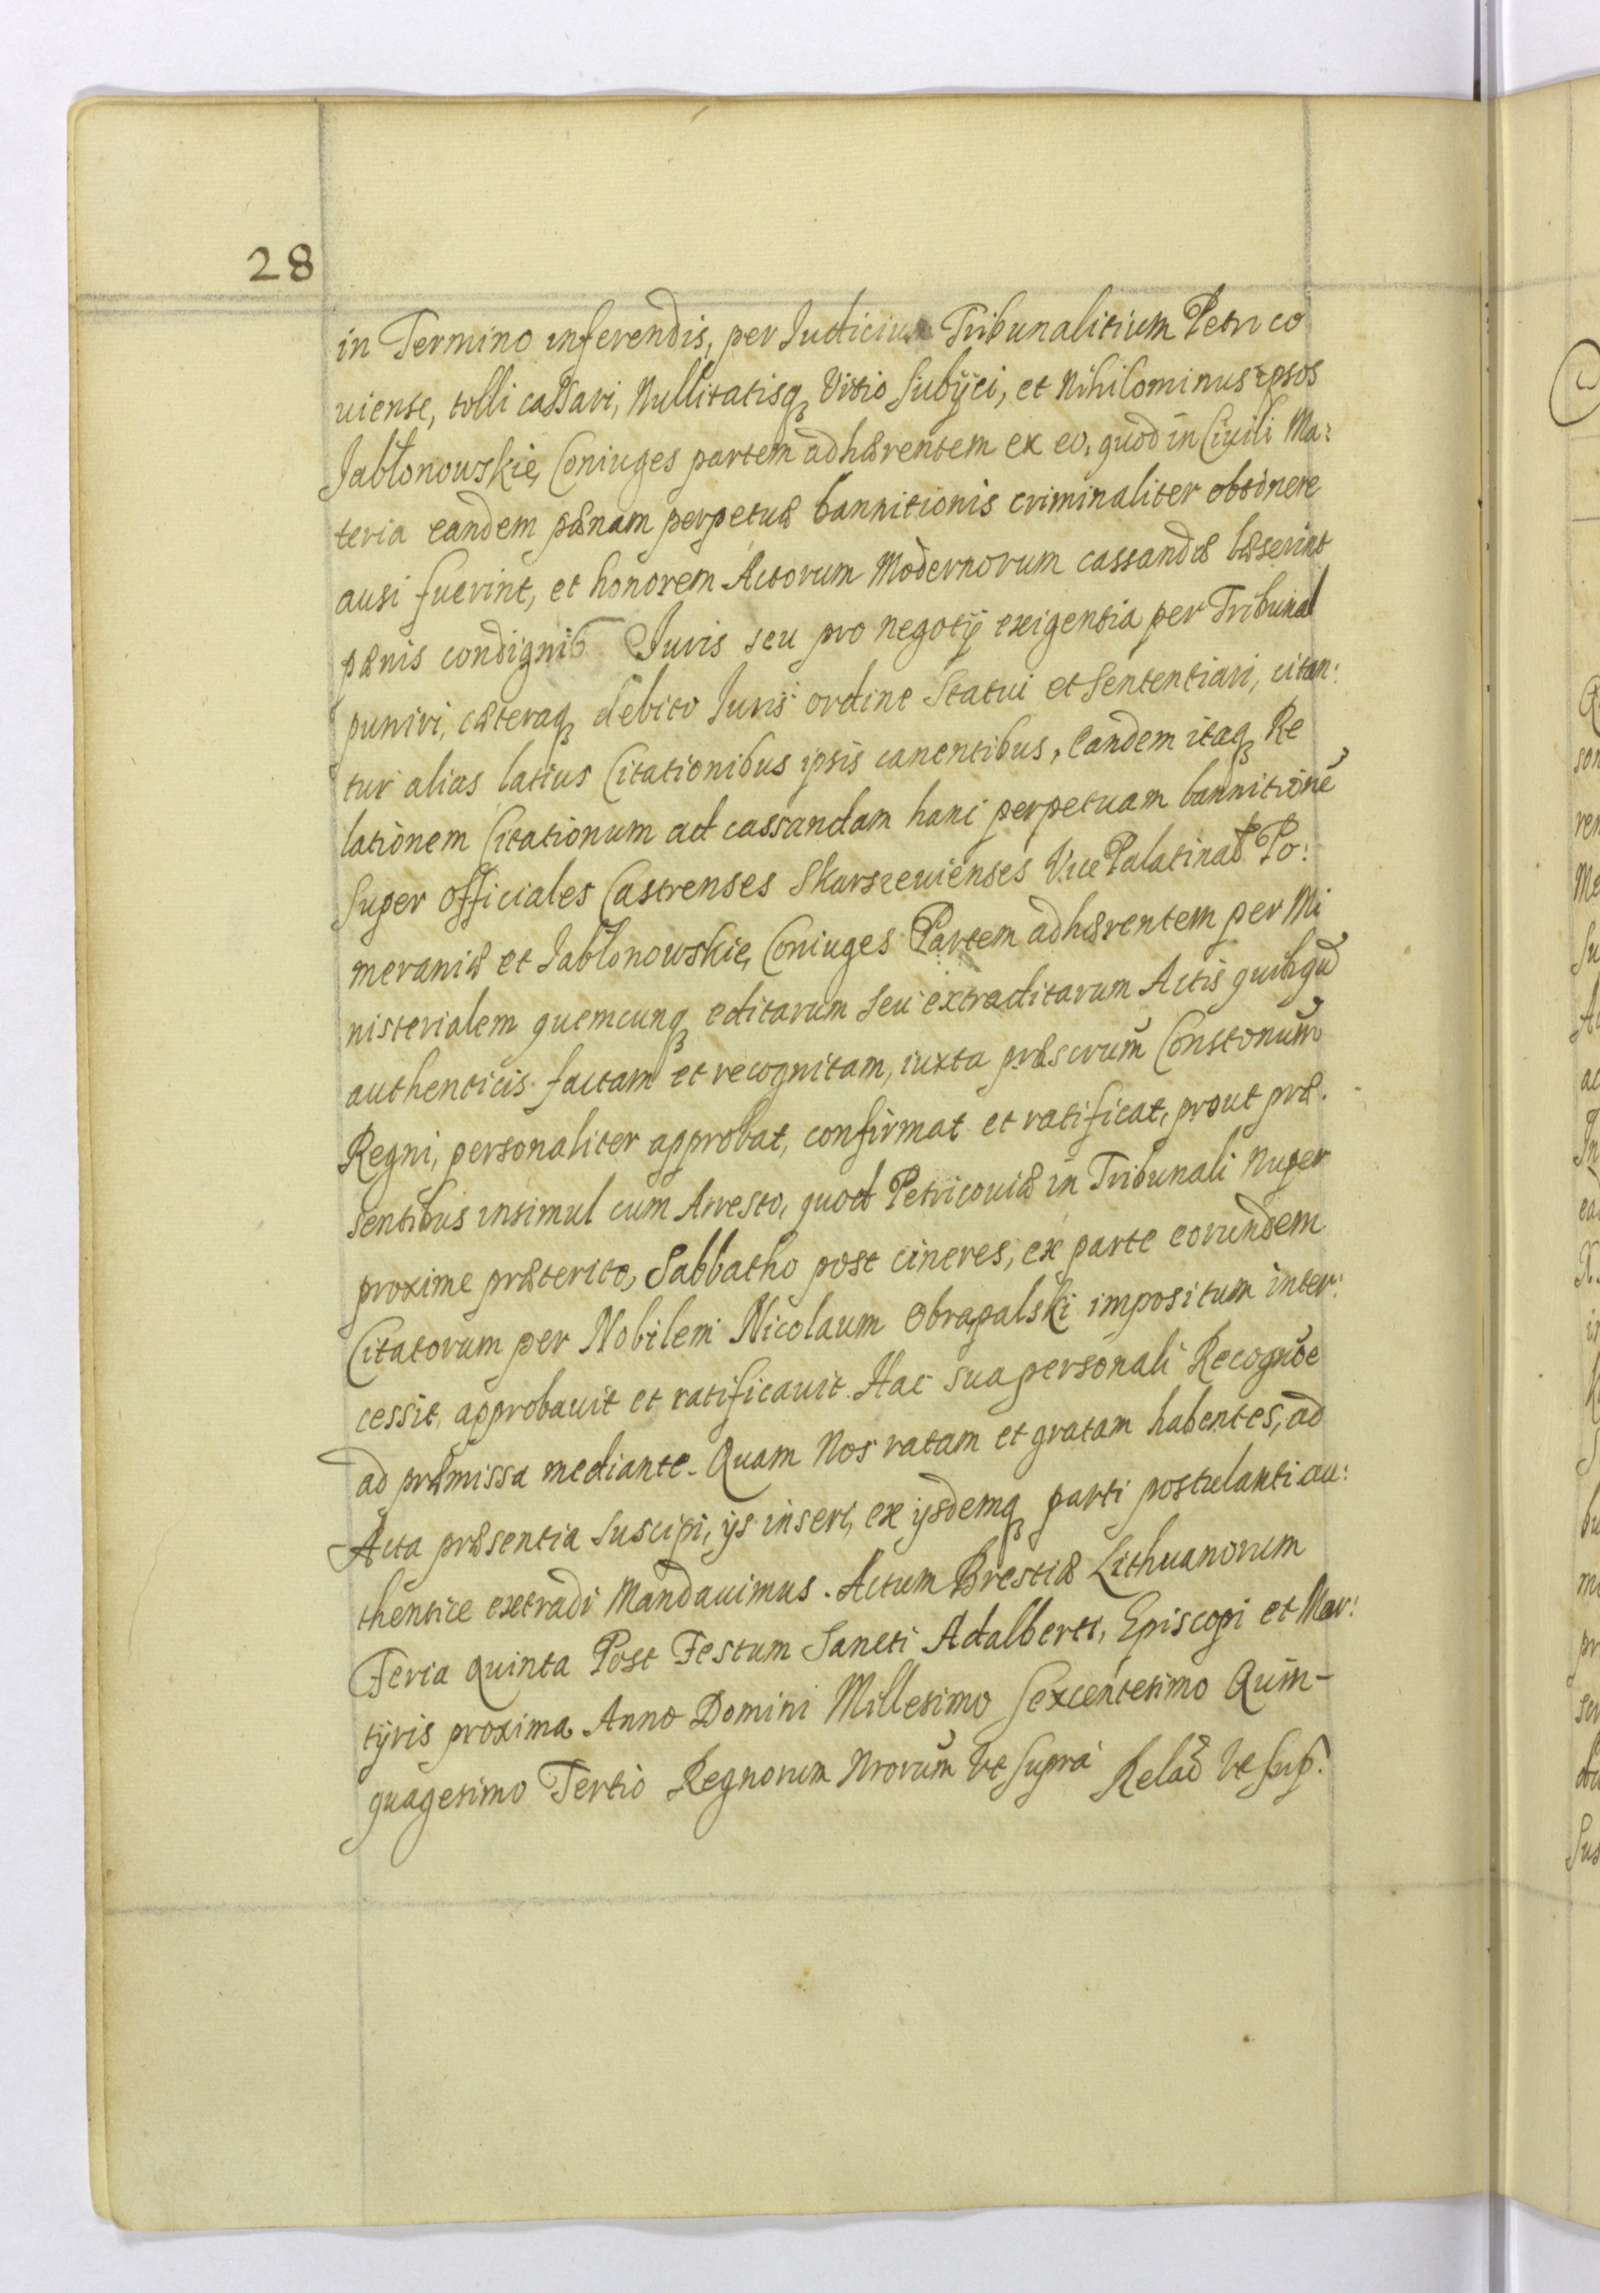 28
in Termino inferendis, per Judicium Tribunalitium Petrico
uiense, tolli cassari, Nullitatisq3 Vitio Subijci, et Nihilominus ipsos
Jabłonowskie, Coniuges partem adhærentem ex eo, quod in Ciuili Ma:
teria eandem pænam perpetuæ bannitionis criminaliter obtinere
ausi fuerint, et honorem Actorum Modernorum cassandæ læserint
pænis condignis Juris seu pro negotij exigentia per Tribunal
puniri, cæteraq3 debito Juris ordine Statui et Sententiari, citan:
tur alias latius Citationibus ipsis canentibus, Eandem itaq3 Re
lationem Citationum ad cassandam hanc perpetuam bannitionē
Super Officiales Castrenses Skarszeuienses Vice Palatinæ Po:
meraniæ et Jabłonowskie, Coniuges Partem adhærentem per Mi
nisterialem quemcunq3 editarum seu extraditarum Actis
authenticis factam et recognitam, iuxta præscrum̃ Constonum̃
Regni, personaliter approbat, confirmat et ratificat, prout præ:
sentibus insimul cum Arresto, quod Petricouiæ in Tribunali Nuper
proxime præterito, Sabbatho post cineres, ex parte eorundem
Citatorum per Nobilem Nicolaum Obrąpalski impositum inter:
cessit, approbauit et ratificauit. Hac sua personali Recognõe
ad præmissa mediante. Quam Nos ratam et gratam habentes, ad
Acta præsentia suscipi, ijs inseri, ex ijsdemq3 parti postulanti au:
thentice extradi Mandauimus. Actum Brestiæ Lithuanorum
Feria Quinta Post Festum Sancti Adalberti, Episcopi et Mar:
tÿris proxima Anno Domini Millesimo Sexcentesimo Quin-
quagesimo Tertio Regnorum Nrorum̃ Vt Supra Relaõ Vt Sup.